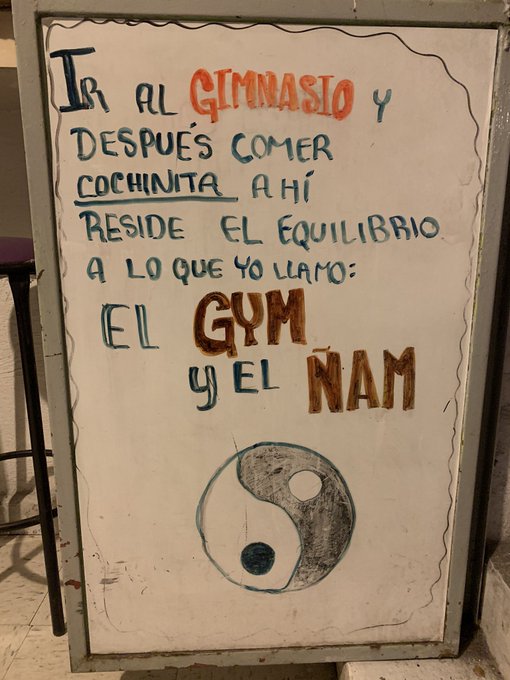 IR AL GIMNASIO Y
DESPUÉS COMER
COCHINITA AHÍ
RESIDE EL EQUILIBRIO
A LO QUE YO LLAMO:
EL GYM
Y EL ÑAM